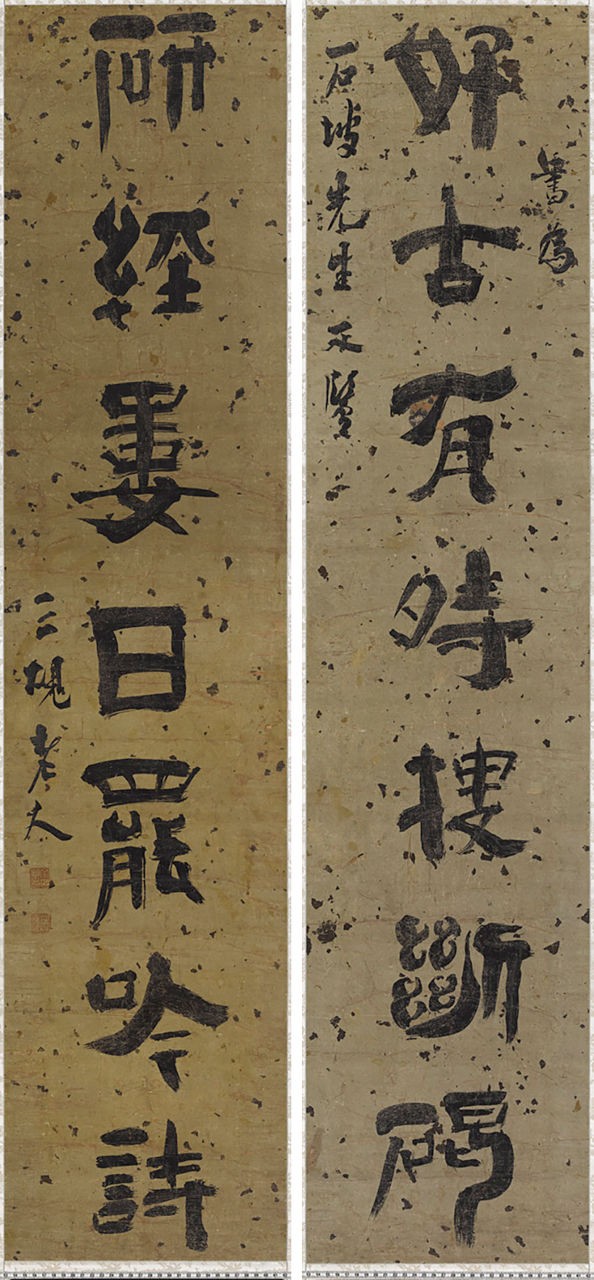 好古有時搜斷碣
書爲
石坡先生正鑒
研經婁日罷吟詩
三硯老夫